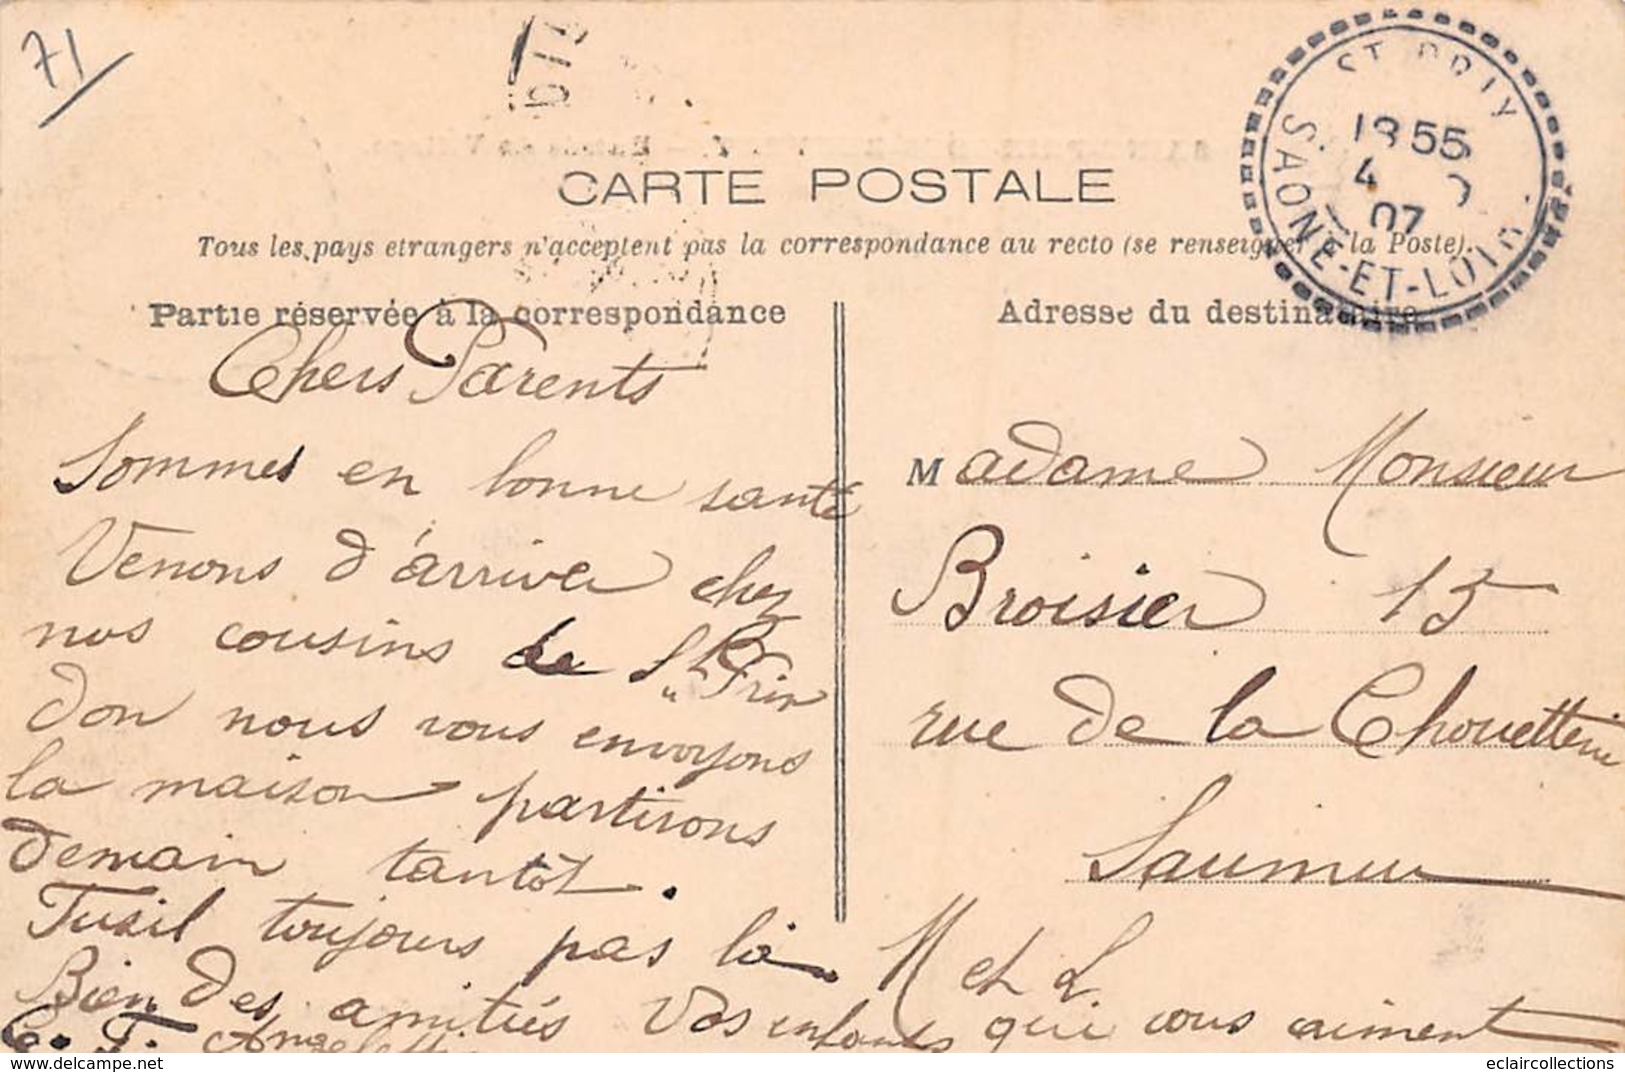 71
ST PRIX
SAONE-ET-LOIRE
1855
4
07
CARTE POSTALE
Tous les pays etrangers n'acceptent pas la correspondance au recto (se renseigner à la Poste).
Partie réservée à la correspondance
Chers Parents
Sommes en bonne santé
Venons d'arriver chez
nos cousins de St Prix
don nous vous envoyons
la maison partirons
demain tantôt.
Fusil toujours pas là.
Bien des amitiés Vos enfants qui vous aiment
M et L.
Adresse du destinataire
Madame Monsieur
Broisier 15
rue de la Chouetterie
Saumur
eclaircollections